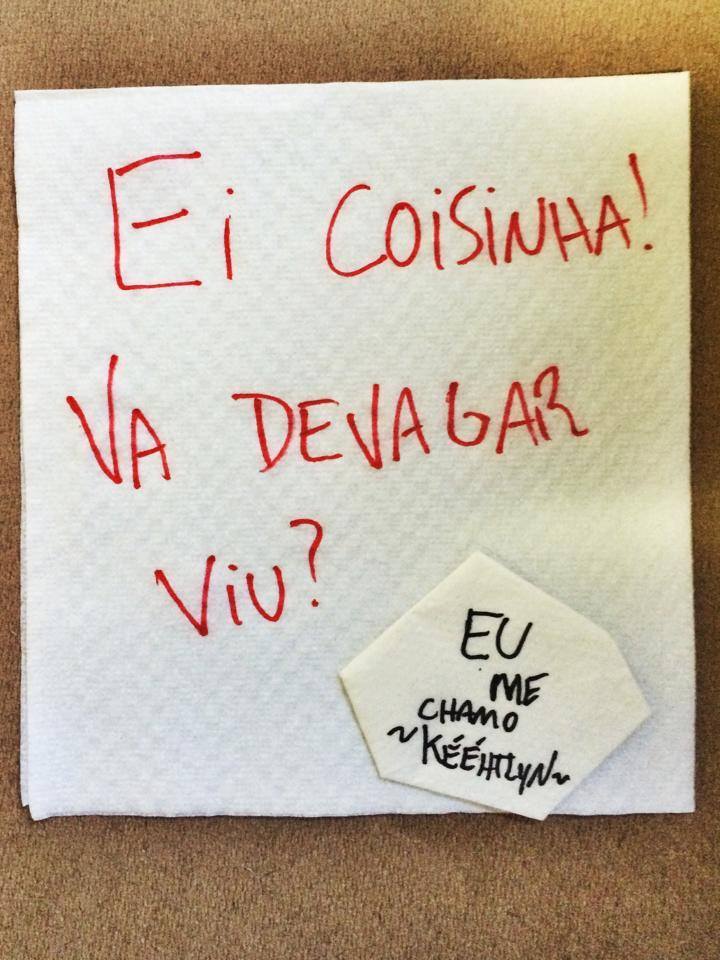 Ei COiSiNHA!
VA DEVAGAR
ViU?
EU
ME
CHAMO
~KÉÉHTLYN~